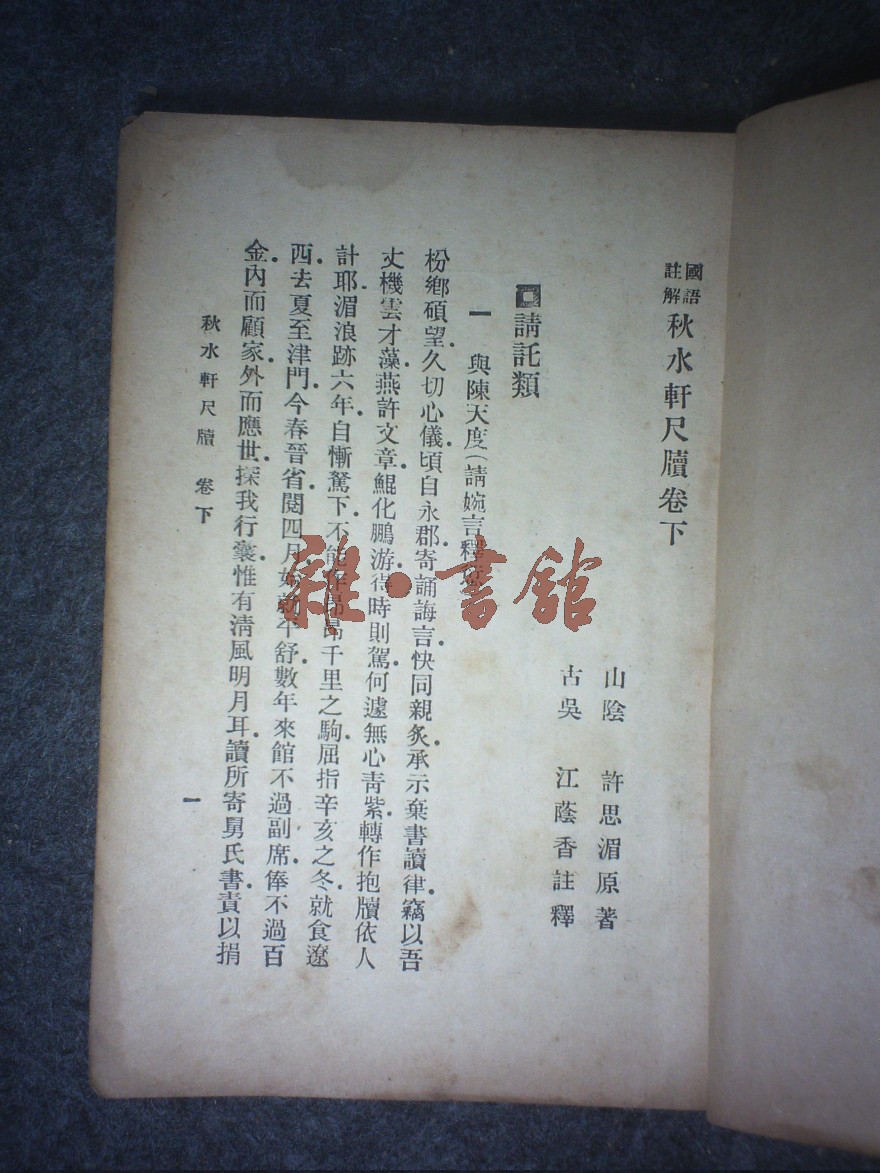 國語註解 秋水軒尺牘卷下
山陰 許思湄原著
古吳 江蔭香註釋
請託類
一 與陳天度(請婉言釋
枌鄉碩望久切心儀頃自永郡寄誦誨言快同親炙承示棄書讀律竊以吾
丈機雲才藻燕許文章鯤化鵬游得時則駕何遽無心青紫轉作抱牘依人
計耶湄浪跡六年自慚駑下不能作昂昂千里之駒屈指辛亥之冬就食遼
西去夏至津門今春晉省閱四月始就平舒數年來館不過副席俸不過百
金內而顧家外而應世探我行囊惟有清風明月耳讀所寄舅氏書責以捐
秋水軒尺牘 卷下
一
雜·書館